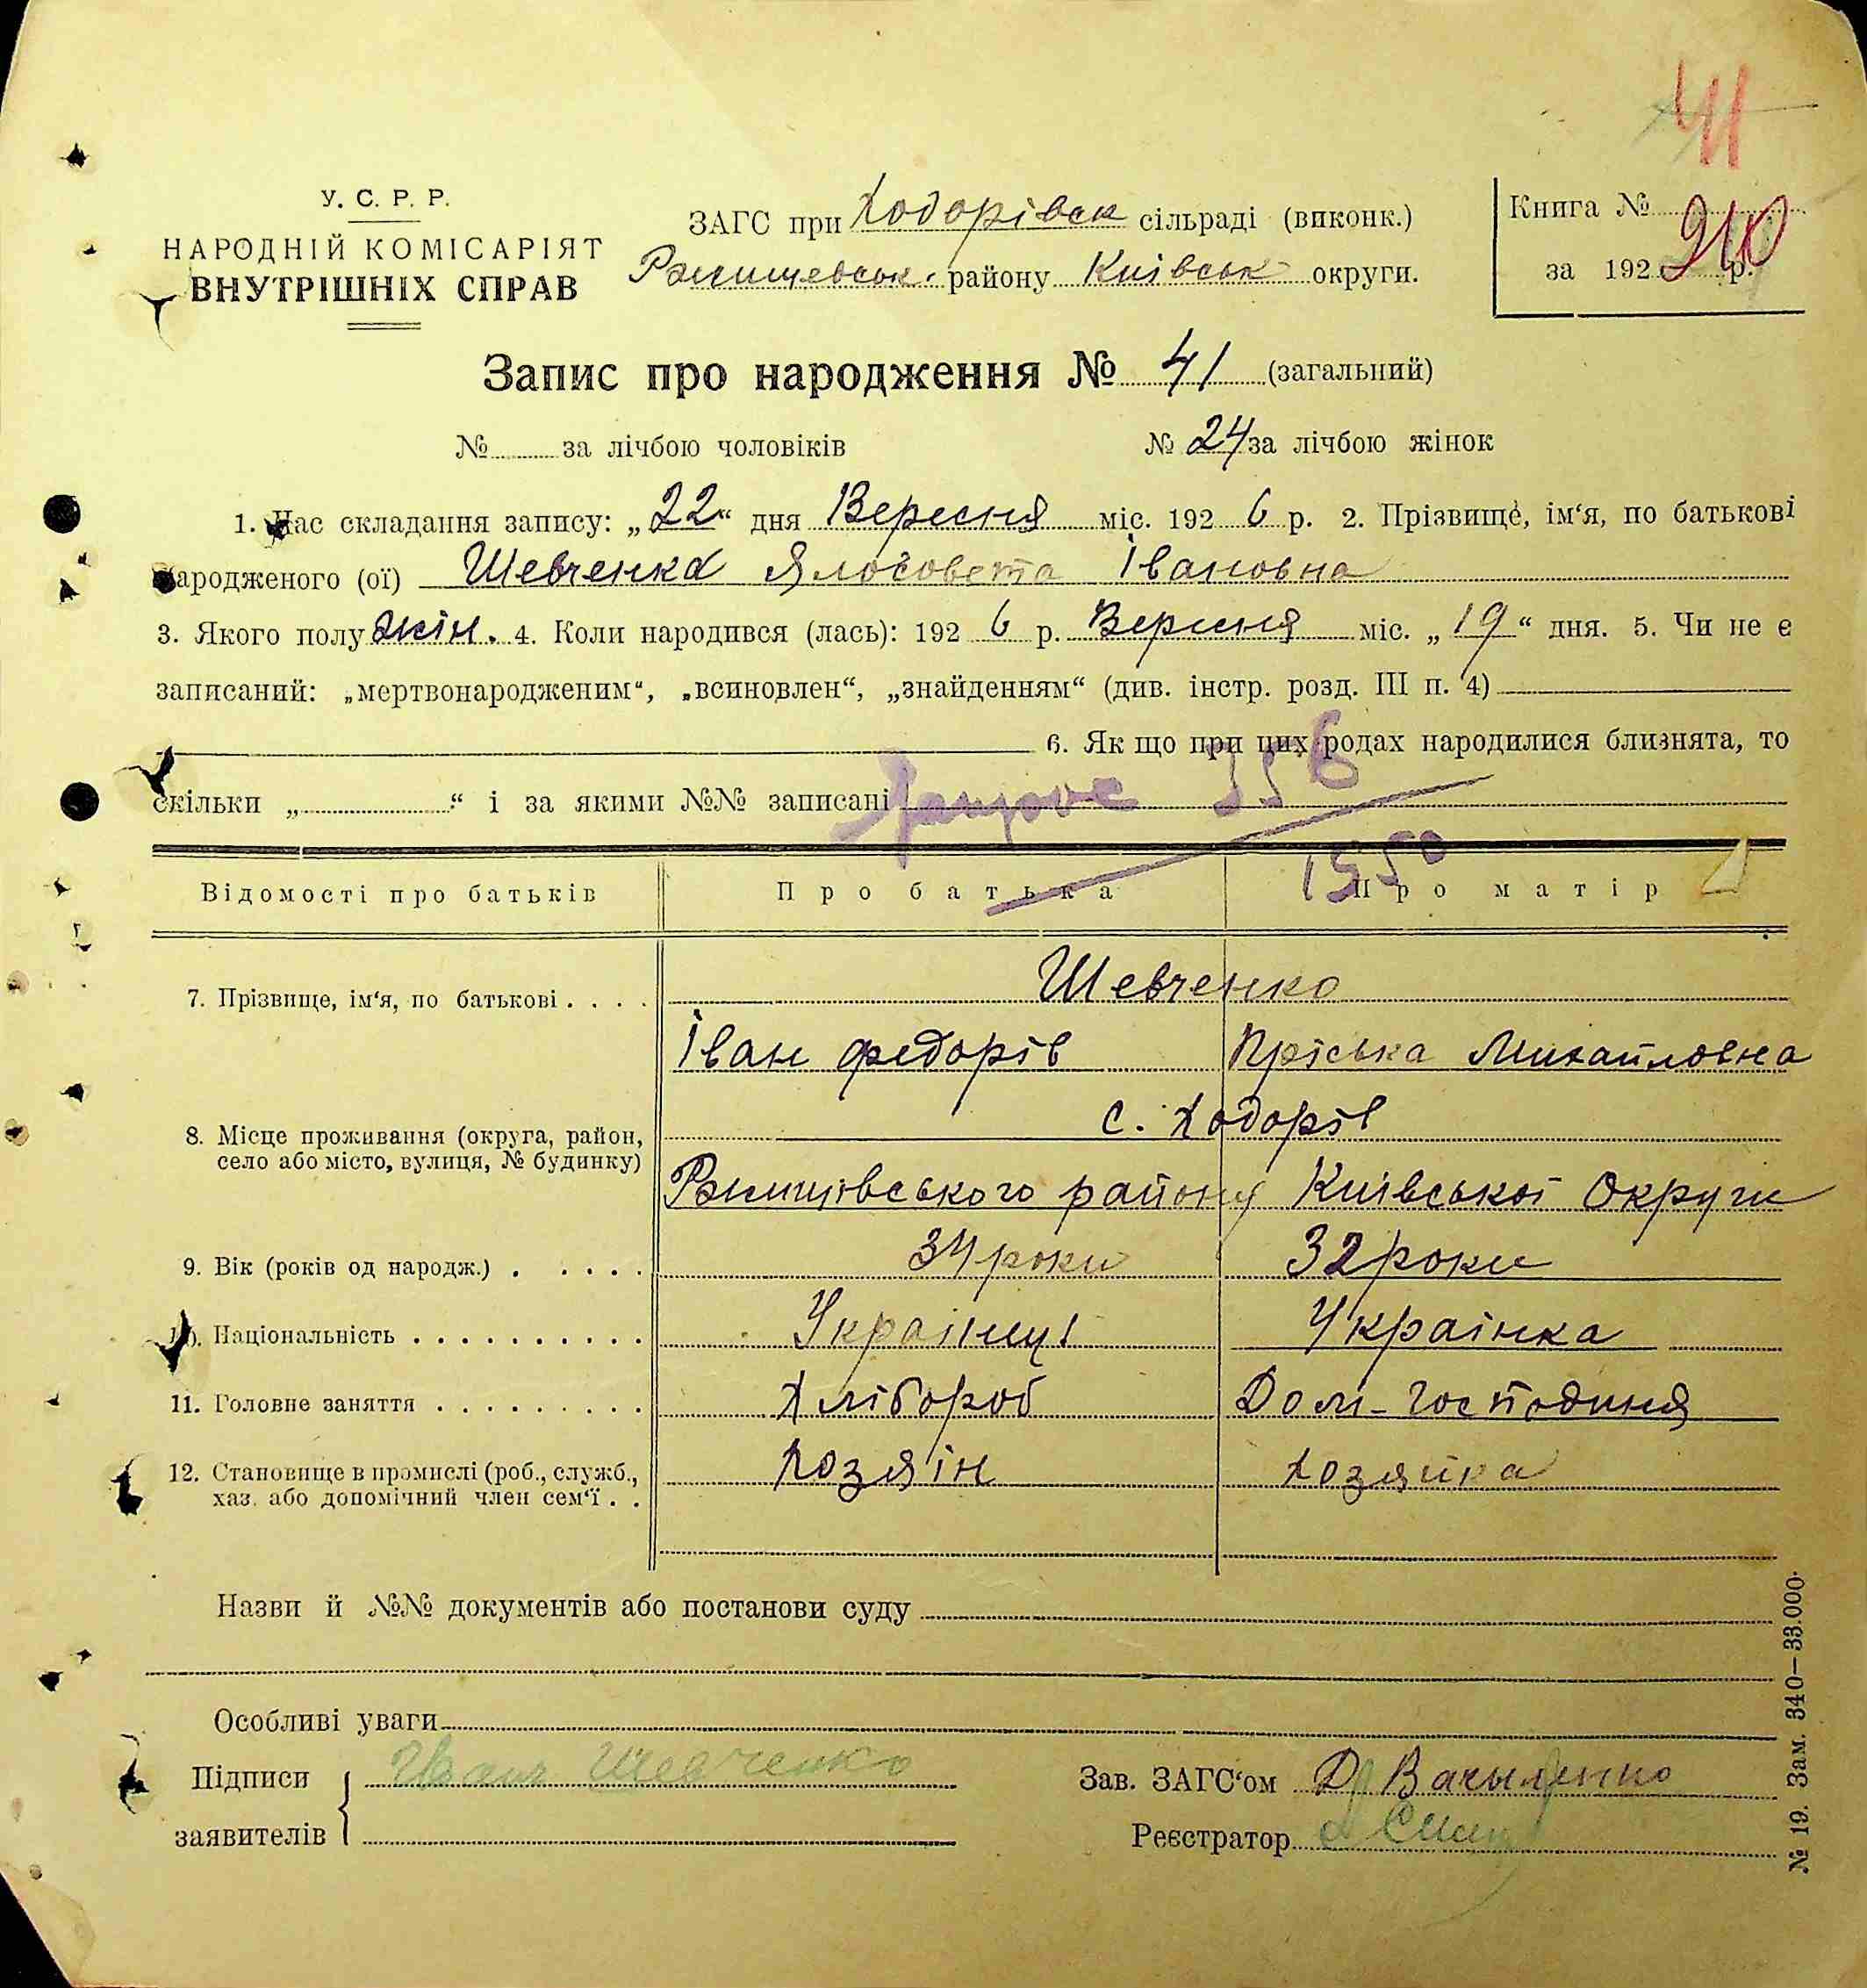 41
У. С. Р. Р.
НАРОДНІЙ КОМІСАРІЯТ
ВНУТРІШНІХ СПРАВ
ЗАГС при Ходорівськ сільраді (виконк.)
Ржищевськ. району Київськ округи.
Книга №
за 192 р.
210
Запис про народження № 41 (загальний)
№ за лічбою чоловіків № 24 за лічбою жінок
1. Час складання запису: „22“ дня Вересня міс. 192 6 р. 2. Прізвище, ім‘я, по батькові
народженого (ої) Шевченко Ялосовета Івановна
3. Якого полу жін. 4. Коли народився (лась): 192 6 р. Вересня міс. „19“ дня. 5. Чи не є
записаний: „мертвонародженим“, „всиновлен“, „знайденням“ (див. інстр. розд. III п. 4)
6. Як що при цих родах народилися близнята, то
скільки „ “ і за якими №№ записані
Запрос 556
1550
Відомості про батьків Про батька Про матір
7. Прізвище, ім‘я, по батькові . . . . Шевченко
Іван Федорів Пріська Михайловна
8. Місце проживання (округа, район, село або місто, вулиця, № будинку) с. Ходорів
Ржищівського району Київської Округи
9. Вік (років од народж.) . . . . . 34 роки 32 роки
10. Національність . . . . . . . . . . Українці Українка
11. Головне заняття . . . . . . . . . Хлібороб Дом-господиня
12. Становище в промислі (роб., служб., хаз. або допомічний член сем‘ї . . хозяїн хозяйка
Назви й №№ документів або постанови суду
Особливі уваги
Підписи заявителів Иван Шевченко
Зав. ЗАГС‘ом
Реєстратор
№ 19. Зам. 340—33.000.